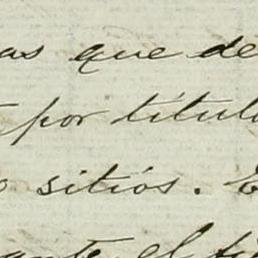 as que de
por titul
sitiós. E
ante el